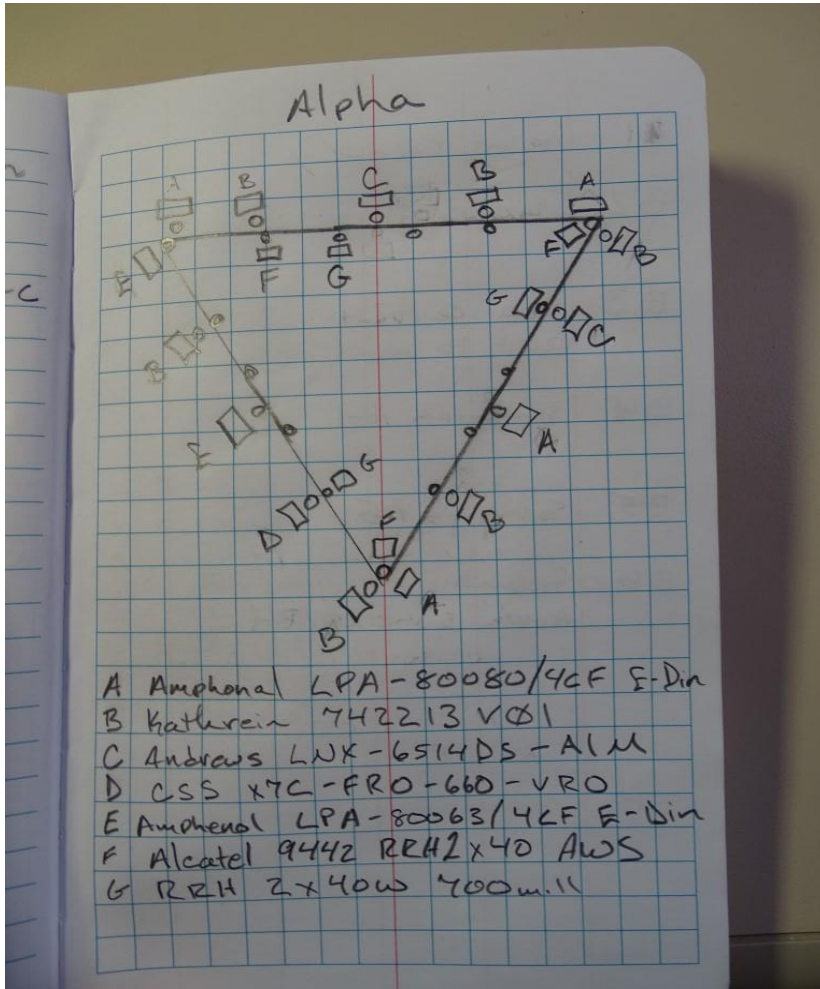 Alpha
A B C B A
E F G F B
-C
G C
B
E A
G
D B
F
B A
A Amphonal LPA-80080/4CF E-Din
B Kathrein 742213 VØ1
C Andrews LNX-6514DS-A1M
D CSS X7C-FRO-660-VRO
E Amphenol LPA-80063/4CF E-Din
F Alcatel 9442 RRH2x40 AWS
G RRH 2x40W 700mil